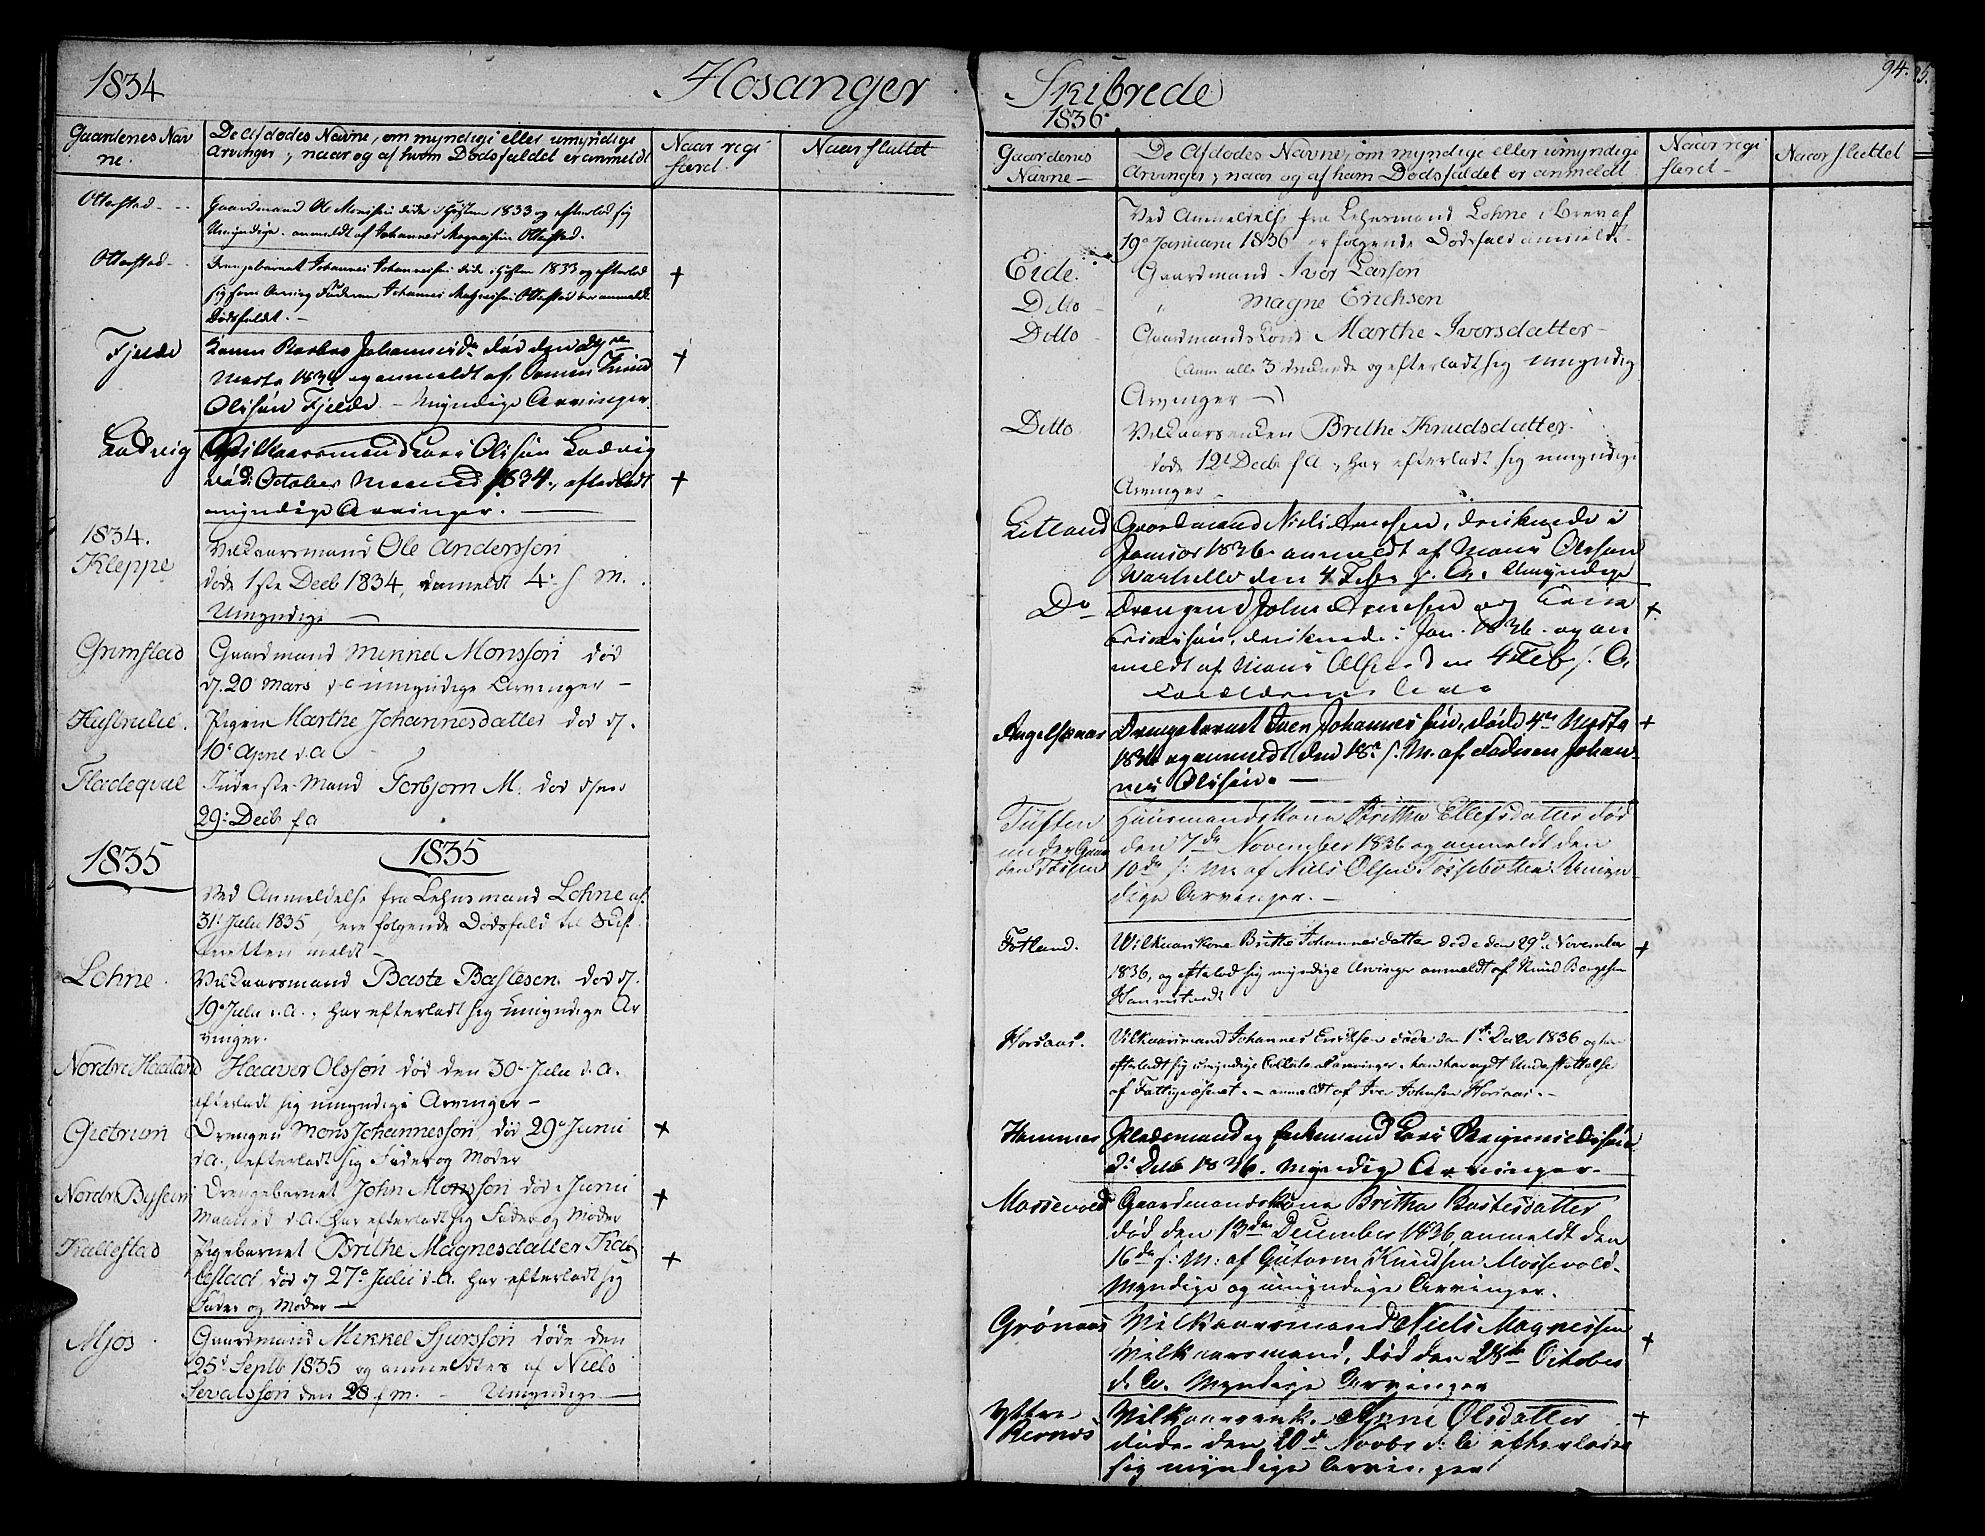 1834
Hosanger
Gaardenes Nav
ne.
De Afdødes Navne, om myndige eller umyndige
Arvinger, naar og af hvem Dødsfaldet er anmeldt
Naar regi
streret
Naar sluttet
Otterstad
Gaardmand Ole Monsen døde i Høsten 1833 og efterlod sig
Umyndige. anmeldt af Johannes Magnesen Otterstad.
Otterstad
Drengebarnet Johannes Johannessen døde i Høsten 1833 og efterlod +
sig som Arving Faderen Johannes Magnesen Otterstad der anmeldte
Dødsfaldet. –
Fjelde
Konen Barbro Johannesda død den
Marts 1834 og anmeldt af Knud +
Olsøn Fjelde – Myndige Arvinger.
Ladvig
Vilkaarsmand Lars Olsøn Ladvig
død October Maaned 1834, efterladt +
myndige Arvinger. –
1834.
Kleppe
Vilkaarsmand Ole Anderssøn
døde 1ste Decb 1834, anmeldt 4 s. M.
Umyndige –
Grimstad
Gaardmand Mikkel Monssøn død
d. 20 Mars d A umyndige Arvinger –
Husbrelie.
Pigen Marthe Johannesdatter død d.
10e April d. A
Fladequal
Inderste-Mand Torbjørn M. død den
29: Decb f A
1835
1835
Ved Anmeldelse fra Lehnsmand Lohne af
31t Julii 1835, ere følgende Dødsfald til Skif
teretten meldt –
Lohne.
Vilkaarsmand Baste Bastesen. død d.
19e Julii d. A., har efterladt sig umyndige Ar
vinger.
Nordre Haaland
Haaver Olssøn død den 30e Julii d. A.
efterladt sig umyndige Arvinger –
Gietrum
Drengen Mons Johannessøn, død 29e Junii +
d A., efterladt sig Fader og Moder
Nordre Bysem
Drengebarnet John Monssøn død i Junii +
Maaned d. A. har efterladt sig Fader og Moder
Kallestad
Pigebarnet Brithe Magnesdatter Kal +
lestad død d 27e Julii d. A. har efterladt sig
Fader og Moder –
Mjos.
Gaardmand Mikkel Sjurssøn døde den
25d Septb 1835 og anmeldtes af Niels
Sevalssøn den 28 s. m. – Umyndige –
Skibrede
1836.
94.
Gaardenes
Navne –
De Afdødes Navne, om myndige eller umyndige
Arvinger, naar og af hvem Dødsfaldet er anmeldt
Naar regi
streret –
Naar sluttet
Ved Anmeldelse fra Lehnsmand Lohne i Brev af
19e Januarii 1836 er følgende Dødsfald anmeldt –
Eide.
Gaardmand Iver Larsen
Ditto
" Magne Erichsen
Ditto
Gaardmandskone Marthe Iversdatter –
(Anm alle 3 druknede og efterladt sig umyndig
Arvinger –)
Ditto.
Vilkaarsenken Brithe Knudsdatter.
døde 12t Decb f A, har efterladt sig umyndige
Arvinger –
Litland
Gaardmand Niels Arnesen, druknede i
Januar 1836 anmeldt af Mons Olssøn
den 4 Febr s. A. Umyndige
Do
Drengen John Arnesen og +
druknede i Jan. 1836. og an
meldt af Mons Olsen den 4 Feb s. A.
Angelskaar
Drengebarnet Iver Johannessøn, døde 4de Marts +
1836 og anmeldt den 18de s. M. af Faderen Johan-
nes Olssøn. –
Tuften
under Gaar
den Tossen
Huusmandskone Britha Ellefsdatter død
den 7de November 1836 og anmeldt den
10de s: M: af Niels Olsen Tossebotten: Umyn-
dige Arvinger. –
Fotland.
Vilkaarskone Britte Johannesdatter døde den 29de November +
1836, og efterlod sig myndige Arvinger anmeldt af Knud Børgesen
Horsaas.
Vilkaarsmand Johannes Erichsen døde den 1ste Decbr 1836 og har
efterladt sig umyndige Collateralarvinger. han har nydt Understøttelse
af Fattigvæsenet. – anmeldt af Iver Johnsen Horsaas. –
Hammer
Pladsmand og Enkemand Lars
d: Decb 1836. Myndige Arvinger –
Mossevold
Gaardmandskona Britha Bastesdatter
død den 13de December 1836, anmeldt den
16de s: M: af Gutorm Knudsen Mossevold –
Myndige og umyndige Arvinger.
Grønaas
Vilkaarsmand Niels Magnessen
Vilkaarsmand, død den 28de October +
d. A. Myndige Arvinger
Yttre
Bernes
Vilkaarsenke Anne Olsdatter +
døde den 20d Novbr d: A efterlader
sig myndige Arvinger